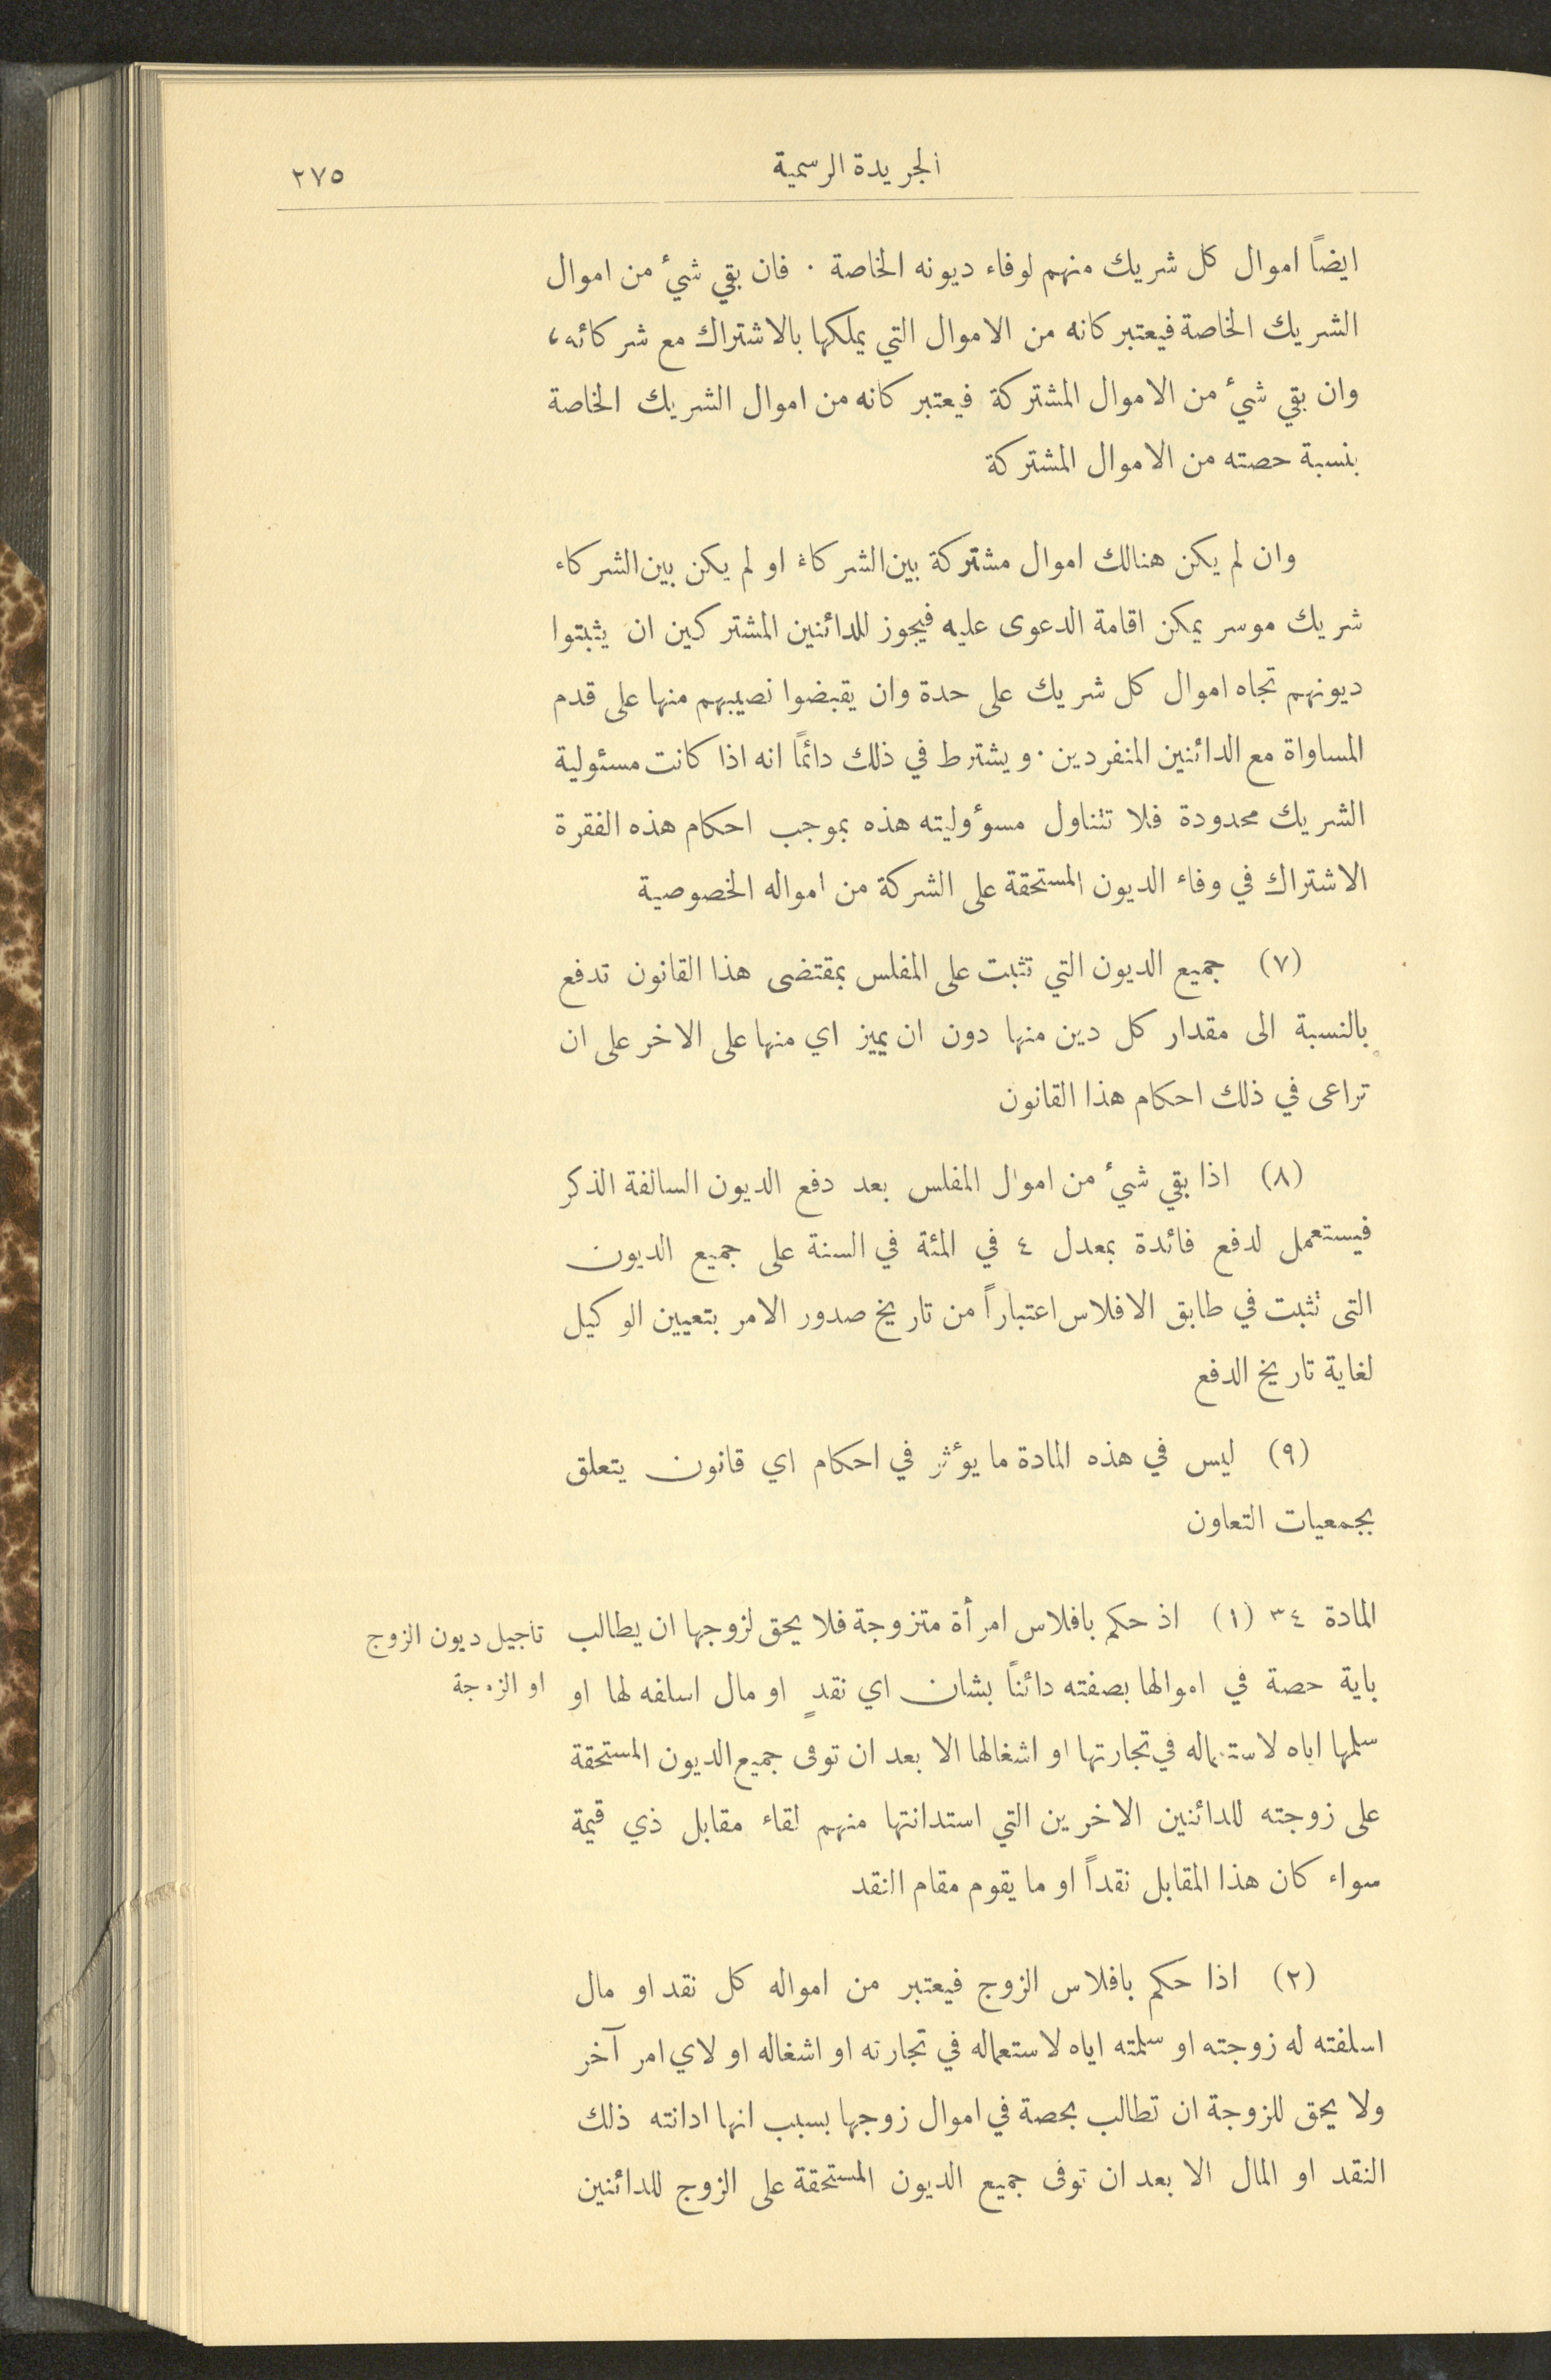 الجريدة الرسمية
٢٧٥
ايضاً اموال كل شريك منهم لوفاء ديونه الخاصة . فان بقي شيٴ من اموال
الشريك الخاصة فيعتبر كانه من الاموال التي يملكها بالاشتراك مع شركائه ،
وان بقي شيٴ من الاموال المشتركة فيعتبر كانه من اموال الشريك الخاصة
بنسبة حصته من الاموال المشتركة
وان لم يكن هنالك اموال مشتركة بين الشركاء او لم يكن بين الشركاء
شريك موسر يمكن اقامة الدعوى عليه فيجوز للدائنين المشتركين ان يثبتوا
ديونهم تجاه اموال كل شريك على حدة وان يقبضوا نصيبهم منها على قدم
المساواة مع الدائنين المنفردين . ويشترط في ذلك دائماً انه اذا كانت مسئولية
الشريك محدودة فلا تتناول مسوٴوليته هذه بموجب احكام هذه الفقرة
الاشتراك في وفاء الديون المستحقة على الشركة من امواله الخصوصية
(٧) جميع الديون التي تثبت على المفلس بمقتضى هذا القانون تدفع
بالنسبة الى مقدار كل دين منها دون ان يميز اي منها على الاخر على ان
تراعى في ذلك احكام هذا القانون
(٨) اذا بقي شيٴ من اموال المفلس بعد دفع الديون السالفة الذكر
فيستعمل لدفع فائدة بمعدل ٤ في المئة في السنة على جميع الديون
التى تثبت في طابق الافلاس اعتباراً من تاريخ صدور الامر بتعيين الوكيل
لغاية تاريخ الدفع
(٩) ليس في هذه المادة ما يوٴثر في احكام اي قانون يتعلق
بجمعيات التعاون
المادة ٣٤ (١) اذ حكم بافلاس امرأة متزوجة فلا يحق لزوجها ان يطالب
باية حصة في اموالها بصفته دائناً بشان اي نقدٍ او مال اسلفه لها او
سلمها اياه لاستعماله في تجارتها او اشغالها الا بعد ان توفى جميع الديون المستحقة
على زوجته للدائنين الاخرين التي استدانتها منهم لقاء مقابل ذي قيمة
سواء كان هذا المقابل نقداً او ما يقوم مقام النقد
تاجيل ديون الزوج
او الزوجة
(٢) اذا حكم بافلاس الزوج فيعتبر من امواله كل نقد او مال
اسلفته له زوجته او سلمته اياه لاستعماله في تجارته او اشغاله او لاي امر آخر
ولا يحق للزوجة ان تطالب بحصة في اموال زوجها بسبب انها ادانته ذلك
النقد او المال الا بعد ان توفى جميع الديون المستحقة على الزوج للدائنين